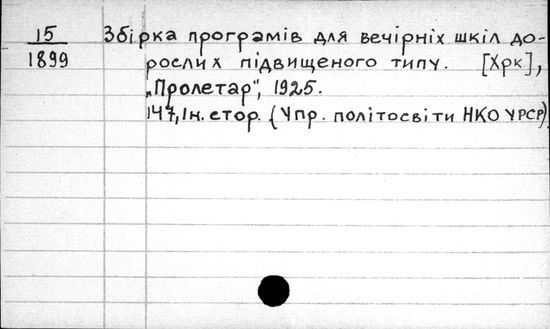 15
1899
Збірка програмів для вечірніх шкіл до-
рослих підвищеного типу. [Хрк],
„Пролетар", 1925.
147, Ін. стор. (Упр. політосвіти НКО УРСР)